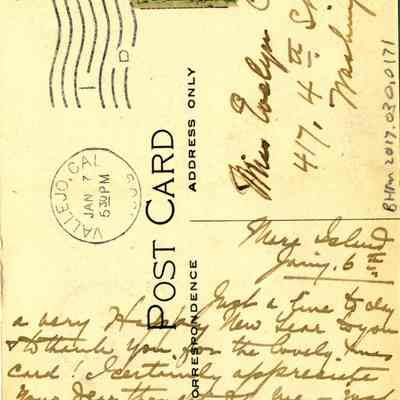 VALLEJO, CAL.
JAN 7
5 30 PM
D
POST CARD
ADDRESS ONLY
CORRESPONDENCE
Miss Evelyn
417, 4th St
Washing
BHM 2017.030.0171
Mare Island
Jany. 6th
Just a line to day
a very Happy New Year to you
& to thank you for the lovely Xmas
card! I certainly appreciate
your dear